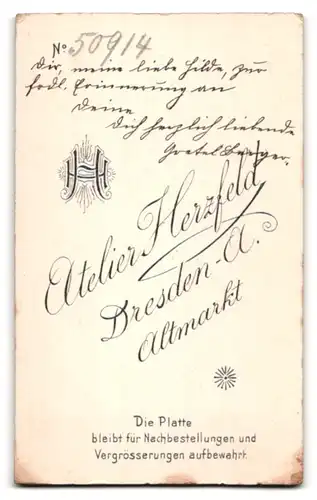 No. 50914
Dir, meine liebe Hilde, zur
frdl. Erinnerung an
Deine
Dich herzlich liebende
Gretel Berger.
H
Atelier Herzfeld
Dresden-A.
Altmarkt
Die Platte
bleibt für Nachbestellungen und
Vergrösserungen aufbewahrt.